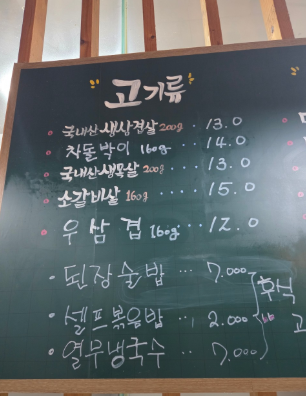 고기류
국내산생삼겹살 200g · 13.0
차돌박이 160g ·· 14.0
국내산생목살 200g ··· 13.0
소갈비살 160g ···· 15.0
우삼겹 160g ·· 12.0
· 된장술밥 ··· 7.000
후식
· 셀프볶음밥 ··· 2.000
· 열무냉국수 ··· 7.000